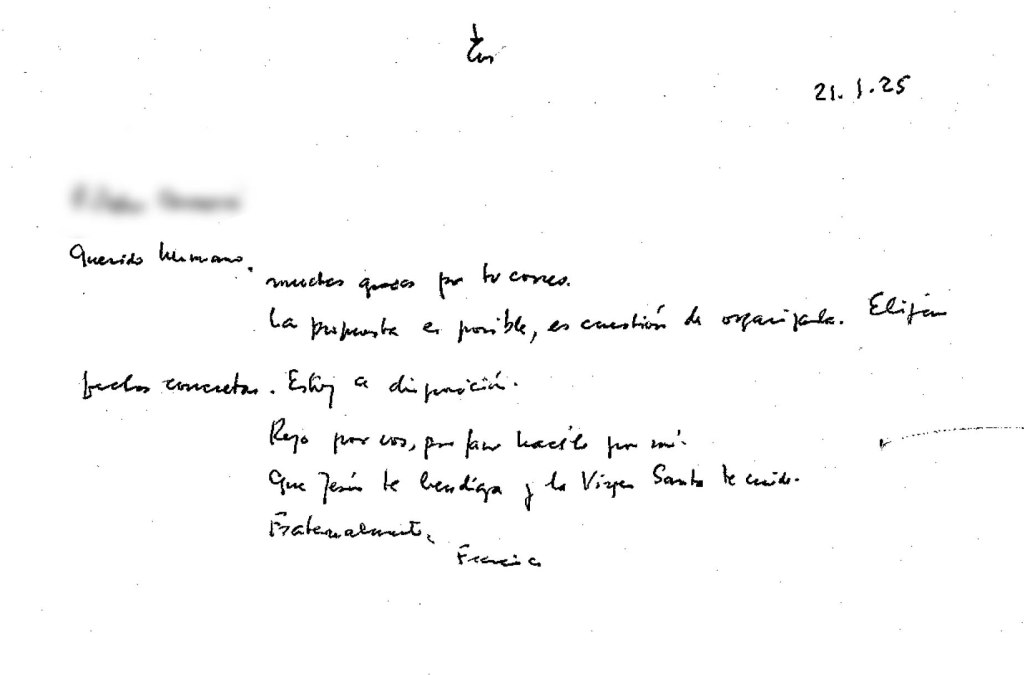 21.1.25
Querido hermano,
muchas gracias por tu correo.
La propuesta es posible, es cuestión de organizarla. Elijan
fechas concretas. Estoy a disposición.
Rezo por vos, por favor hacélo por mí.
Que Jesús te bendiga y la Virgen Santa te cuide.
Fraternalmente,
Francisco